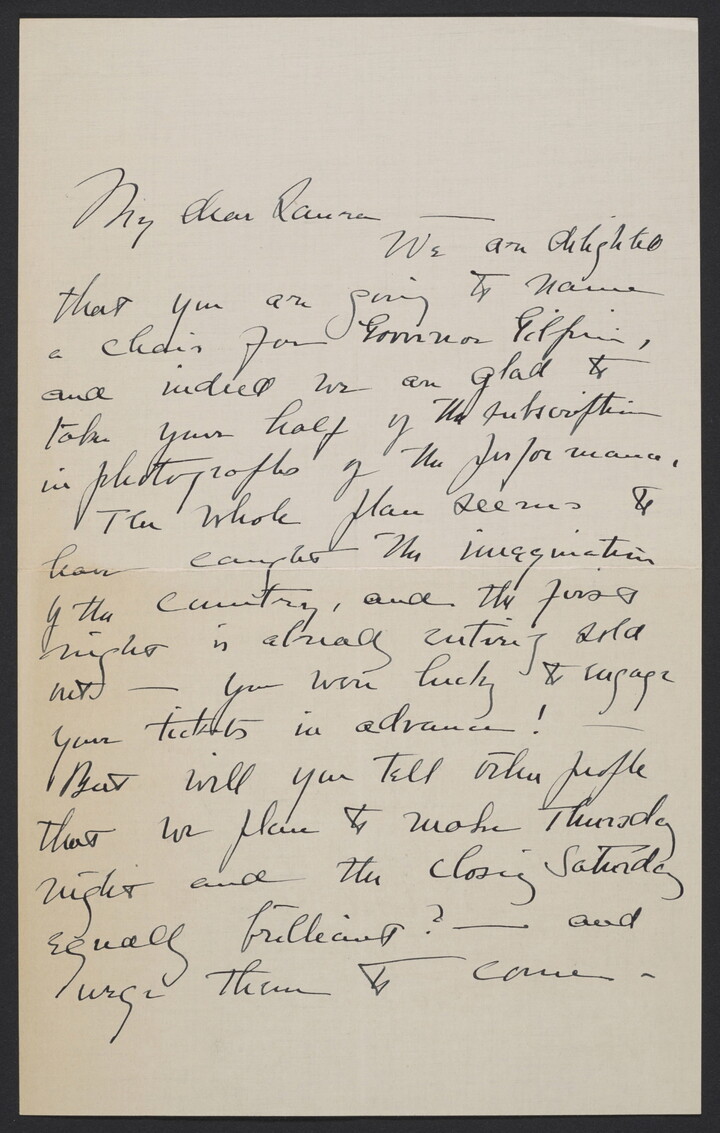 My dear Laura —
We are delighted
that you are going to name
a chair for Governor Gilpin,
and indeed we are glad to
take your half of the subscription
in photographs of the performance.
The whole plan seems to
have caught the imagination
of the country, and the first
night is already entirely sold
out — you were lucky to engage
your tickets in advance! —
But will you tell other people
that we plan to make Thursday
night and the closing Saturday
equally brilliant? — and
urge them to come —